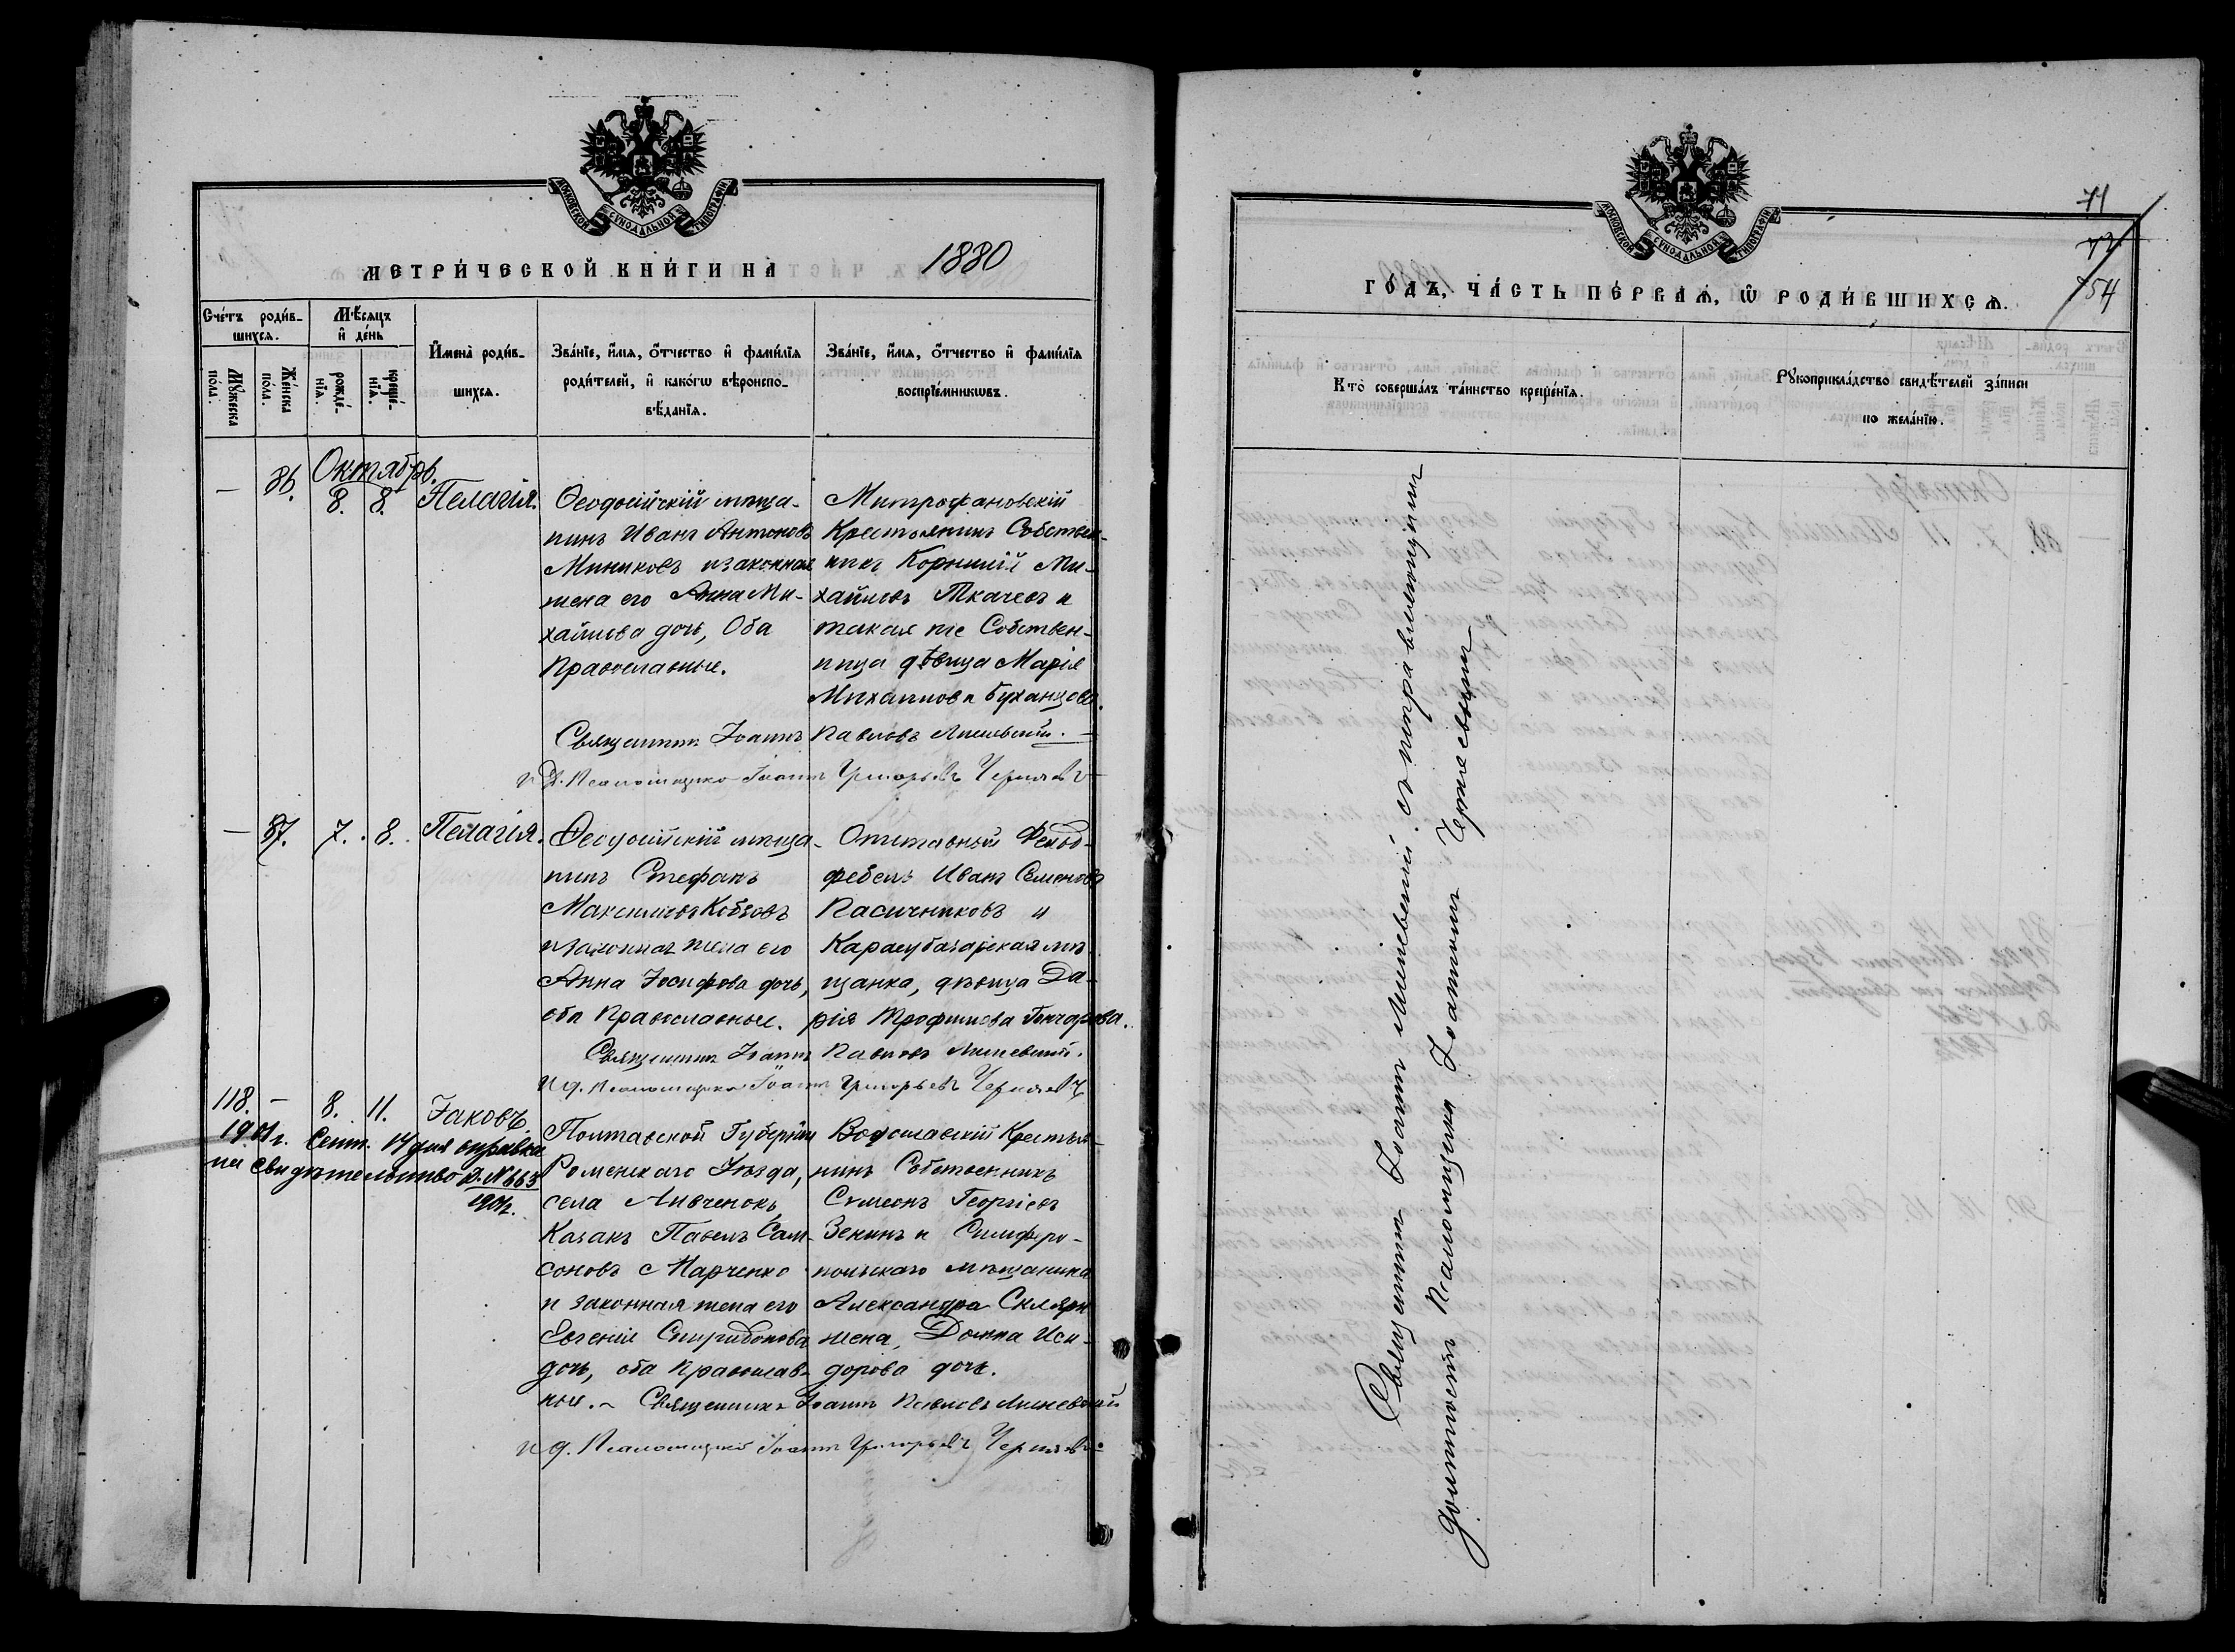 МОСКОВСКОЙ СѴНОДАЛЬНОЙ ТИПОГРАФІИ
МЕТРИ́ЧЕСКОЙ КНИ́ГИ НА 1880
Сче́тъ роди́в-
шихсѧ.
Мѣ́сяцъ
и҆ де́нь
Мꙋжеска
по́ла.
Же́нска
по́ла.
рожде́-
нїѧ.
креще́-
нїѧ.
И҆мена̀ роди́в-
шихсѧ.
Зва́нїе, и҆́мѧ, ѻ҆́тчество и҆ фами́лїѧ
роди́телей, и҆ како́гѡ вѣроиспо-
вѣ́данїѧ.
Зва́нїе, и҆́мѧ, ѻ҆́тчество и҆ фами́лїѧ
воспрїе́мникѡвъ.
Октябрь.
— 86. 8. 8. Пелагія.
Ѳеодосійскій мѣща-
нинъ Иванъ Антоновъ
Миниковъ и законная
жена его Анна Ми-
хайлова дочь, Оба
Православные.
Митрофановскій
Крестьянинъ Собствен-
никъ Корнилій Ми-
хайловъ Ткачевъ и
такая же Собствен-
ница дѣвица Марія
Михайлова Буханцова.
Священникъ Іоаннъ Павловъ
И. д. Псаломщика Іоаннъ Григорьевъ Черняевъ
— 87. 7. 8. Пелагія.
Ѳеодосійскій мѣща-
нинъ Стефанъ
Максимовъ Кобзовъ
и законная жена его
Анна Іосифова дочь,
оба Православные.
Отставной Фельд-
фебель Иванъ Семеновъ
Пасичниковъ и
Карасубазарская мѣ-
щанка, дѣвица Да-
рія Трофимова Гончарова.
Священникъ Іоаннъ Павловъ
И. д. Псаломщика Іоаннъ Григорьевъ Черняевъ
118. — 8. 11. Іаковъ.
1901 г. Сент. 14 дня справка
на свидѣтельство Д. № 663
1901 г.
Полтавской Губерніи
Роменскаго Уѣзда,
села Ливченокъ
Казакъ Павелъ Сам-
соновъ Марченко
и законная жена его
Евгенія Спиридонова
дочь, оба Православ-
ные.
Водославскій Крестья-
нинъ Собственникъ
Симеонъ Георгіевъ
Зенинъ и Симферо-
польскаго мѣщанина
Александра Скляра
жена, Домна Иси-
дорова дочь.
Священникъ Іоаннъ Павловъ
И. д. Псаломщика Іоаннъ Григорьевъ Черняевъ
71
72
754
МОСКОВСКОЙ СѴНОДАЛЬНОЙ ТИПОГРАФІИ
ГО́ДЪ, ЧА́СТЬ ПЕ́РВАѦ, Ѡ҆ РОДИ́ВШИХСѦ.
Кто̀ соверша́лъ та́инство креще́нїѧ.
Рꙋкоприкла́дство свидѣ́телей за́писи
по жела́нїю.
Священникъ Іоаннъ съ исправляющимъ
должность Псаломщика Іоанномъ Черняевымъ